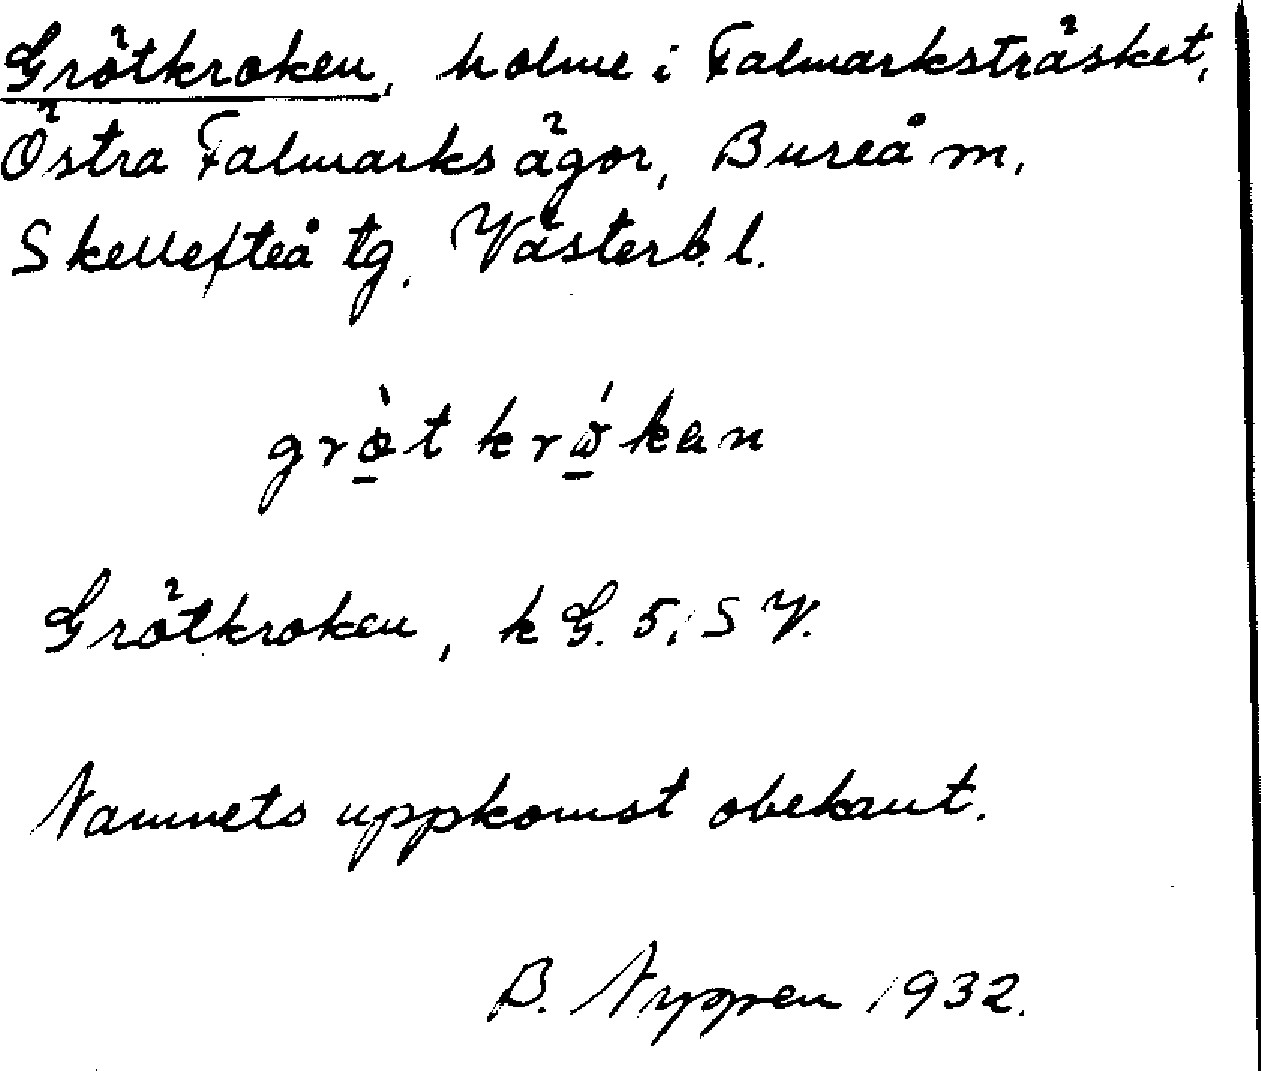 Grötkroken, holme i Falmarksträsket,
Östra Falmarks ägor, Bureå m.
Skellefteå tg. Västerb. l.
grö̀tkrǿkan
Grötkroken, k G. 5. SV.
Namnets uppkomst obekant.
B. 1932.